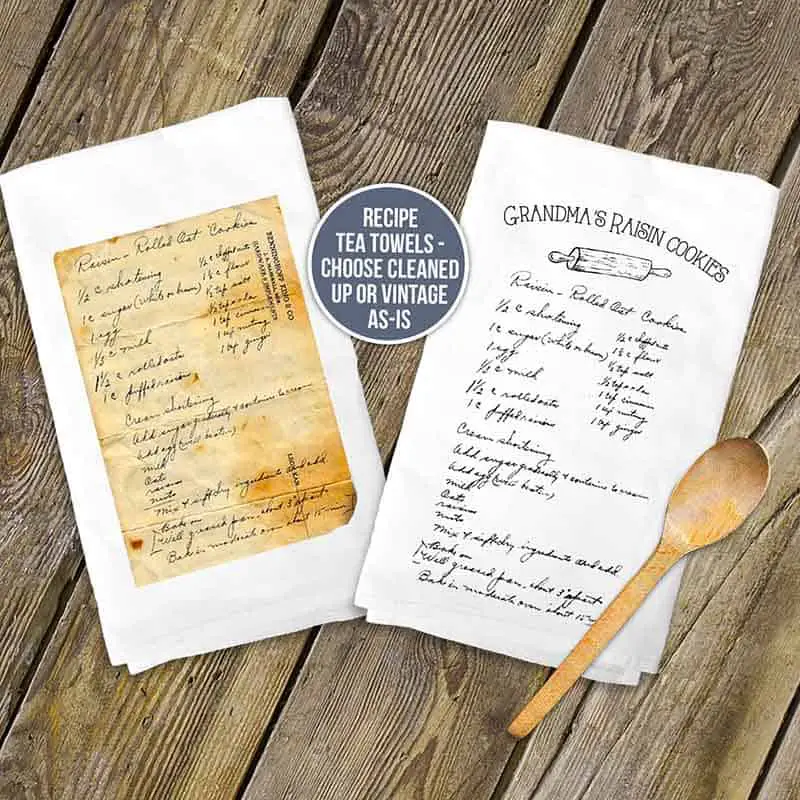 Raisin - Rolled Oat Cookies
½ c shortening
1 c sugar (white or brown)
1 egg
⅓ c milk
1½ c rolled oats
1 c puffed raisins
½ c
1½ c flour
½ tsp salt
½ tsp soda
1 tsp cinnamon
1 tsp nutmeg
1 tsp ginger
Cream shortening
Add sugar gradually & continue to cream
Add egg (well beaten)
milk
Oats
raisins
nuts
Mix & sift dry ingredients and add.
Bake on
Well greased pan, about 3" apart.
Bake in moderate oven about 15 min
RECIPE
TEA TOWELS -
CHOOSE CLEANED
UP OR VINTAGE
AS-IS
GRANDMA'S RAISIN COOKIES
Raisin - Rolled Oat Cookies
½ c shortening
1 c sugar (white or brown)
1 egg
⅓ c milk
1½ c rolled oats
1 c puffed raisins
½ c
1½ c flour
½ tsp salt
½ tsp soda
1 tsp cinnamon
1 tsp nutmeg
1 tsp ginger
Cream shortening
Add sugar gradually & continue to cream
Add egg (well beaten)
milk
Oats
raisins
nuts
Mix & sift dry ingredients and add.
Bake on
Well greased pan, about 3" apart.
Bake in moderate oven about 15